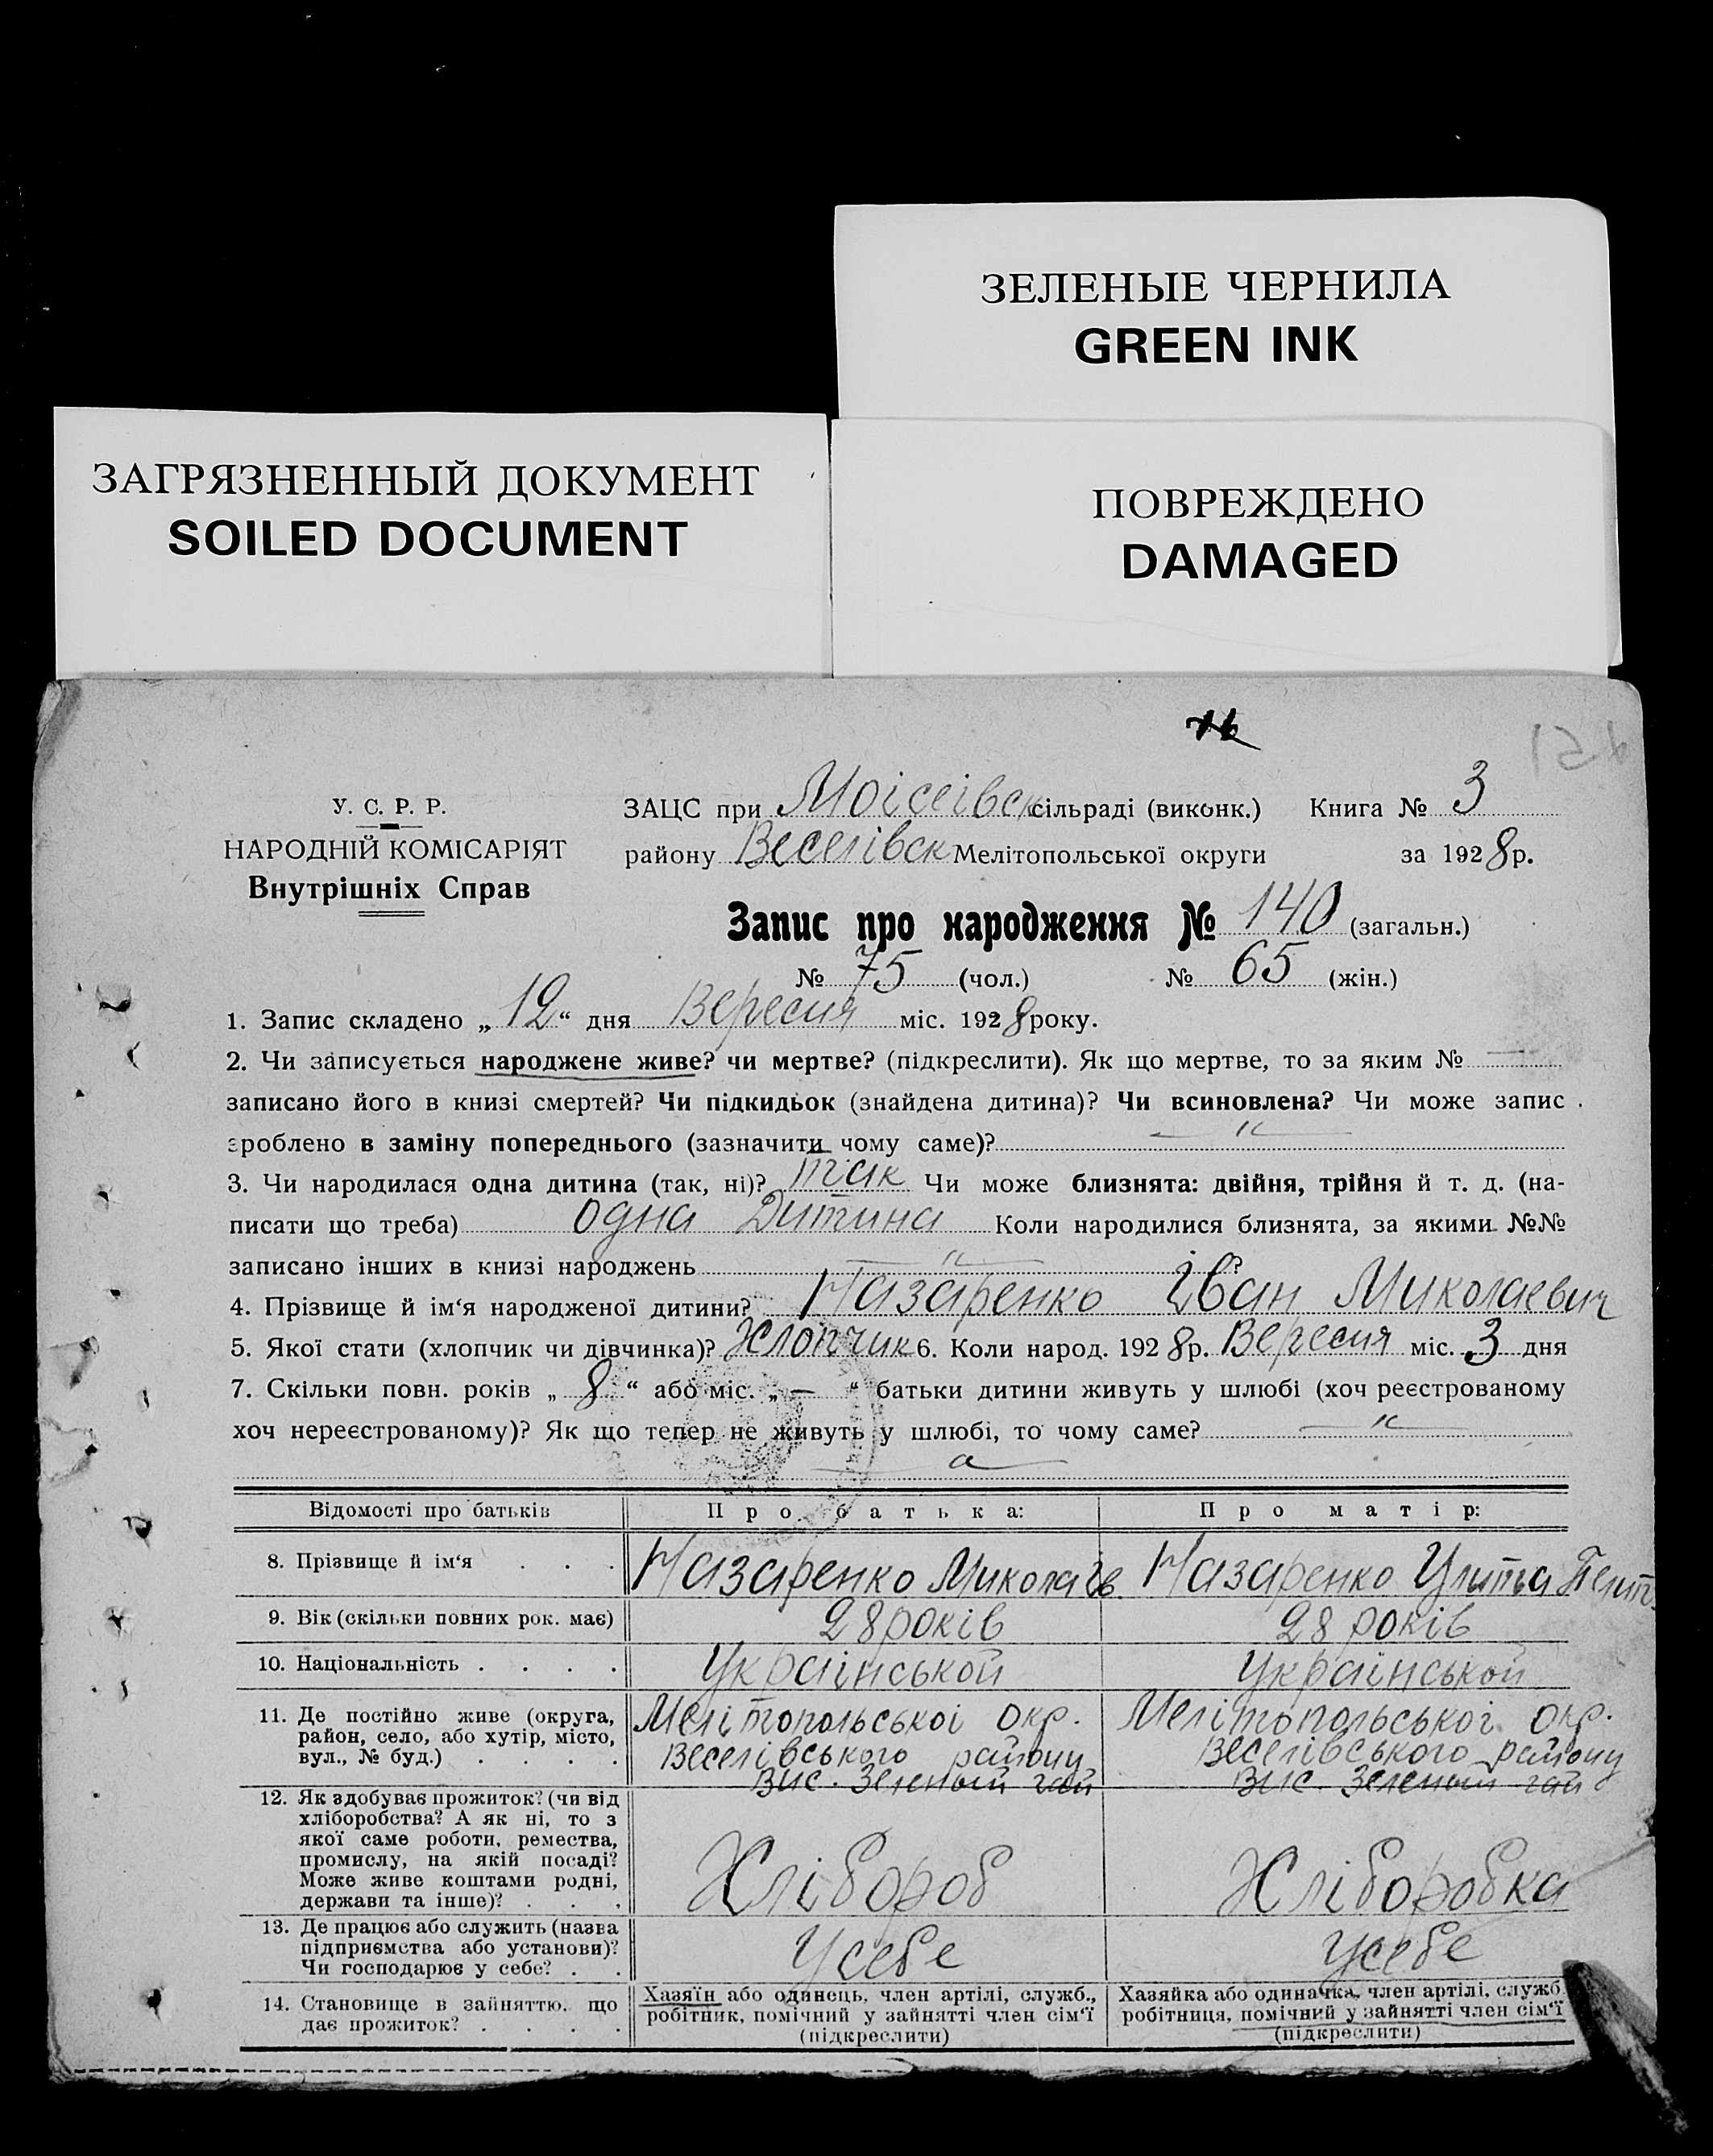 ЗЕЛЕНЫЕ ЧЕРНИЛА
GREEN INK
ЗАГРЯЗНЕННЫЙ ДОКУМЕНТ
SOILED DOCUMENT
ПОВРЕЖДЕНО
DAMAGED
У. С. Р. Р.
НАРОДНІЙ КОМІСАРІЯТ
Внутрішніх Справ
ЗАЦС при Моісеівск сільраді (виконк.) Книга № 3
району Веселівск Мелітопольської округи за 1928 р.
Запис про народження № 140 (загальн.)
№ 75 (чол.) № 65 (жін.)
1. Запис складено „12“ дня Вересня міс. 1928 року.
2. Чи записується народжене живе? чи мертве? (підкреслити). Як що мертве, то за яким № —
записано його в книзі смертей? Чи підкидьок (знайдена дитина)? Чи всиновлена? Чи може запис
зроблено в заміну попереднього (зазначити чому саме)? — „ —
3. Чи народилася одна дитина (так, ні)? так Чи може близнята: двійня, трійня й т. д. (на-
писати що треба) одна Дитина Коли народилися близнята, за якими №№
записано інших в книзі народжень — „ — ?
4. Прізвище й ім‘я народженої дитини? Назаренко Іван Миколаевич
5. Якої стати (хлопчик чи дівчинка)? Хлопчик 6. Коли народ. 1928 р. Вересня міс. 3 дня
7. Скільки повн. років „8“ або міс. „—“ батьки дитини живуть у шлюбі (хоч реєстрованому
хоч нереєстрованому)? Як що тепер не живуть у шлюбі, то чому саме? — „ —
Відомості про батьків
Про батька:
Про матір:
8. Прізвище й ім‘я . . .
Назаренко Микола Ів.
Назаренко Улита
9. Вік (скільки повних рок. має)
28 років
28 років
10. Національність . . . .
Українськой
Українськой
11. Де постійно живе (округа,
район, село, або хутір, місто,
вул., № буд.) . . . .
Мелітопольськоі окр.
Веселівського району
Вис. Зеленый гай
Мелітопольськоі окр.
Веселівського району
Вис. Зеленый гай
12. Як здобуває прожиток? (чи від
хліборобства? А як ні, то з
якої саме роботи, ремества,
промислу, на якій посаді?
Може живе коштами родні,
держави та інше)? . . .
Хлібороб
Хліборобка
13. Де працює або служить (назва
підприємства або установи)?
Чи господарює у себе? . .
Усебе
Усебе
14. Становище в зайняттю. що
дає прожиток? . . . .
Хазяїн або одинець, член артілі, служб.,
робітник, помічний у зайнятті член сім‘ї
(підкреслити)
Хазяйка або одиначка, член артілі, служб.
робітниця, помічний у зайнятті член сім‘ї
(підкреслити)